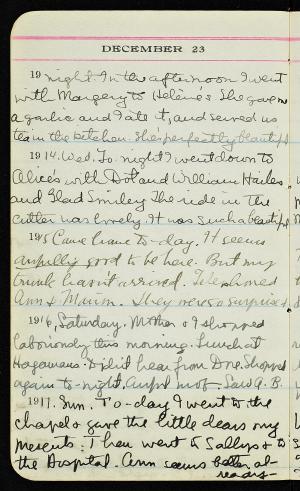 DECEMBER 23
19 night. In the afternoon I went
with Margery to Helène's. She gave me
a garlic and I ate it, and served us
tea in the kitchen. She's perfectly beautiful
1914. Wed. To-night I went down to
Alice's with Dot and William Hailes
and Glad Smiley. The ride in the
cutter was lovely. It was such a beautiful
1915 Came home to-day. It seems
awfully good to be here. But my
trunk hasn't arrived. Telephoned
Ann & Marion. They were so surprised
1916, Saturday. Mother & I shopped
laboriously this morning. Lunch at
Hagamans. Didn't hear from D. Shopped
again to-night. Awful mob. Saw G. B.
1917. Sun. To-day I went to the
chapel & gave the little dears my
presents. Then went to Sallys & to
the Hospital. Ann seems better al-
ready-